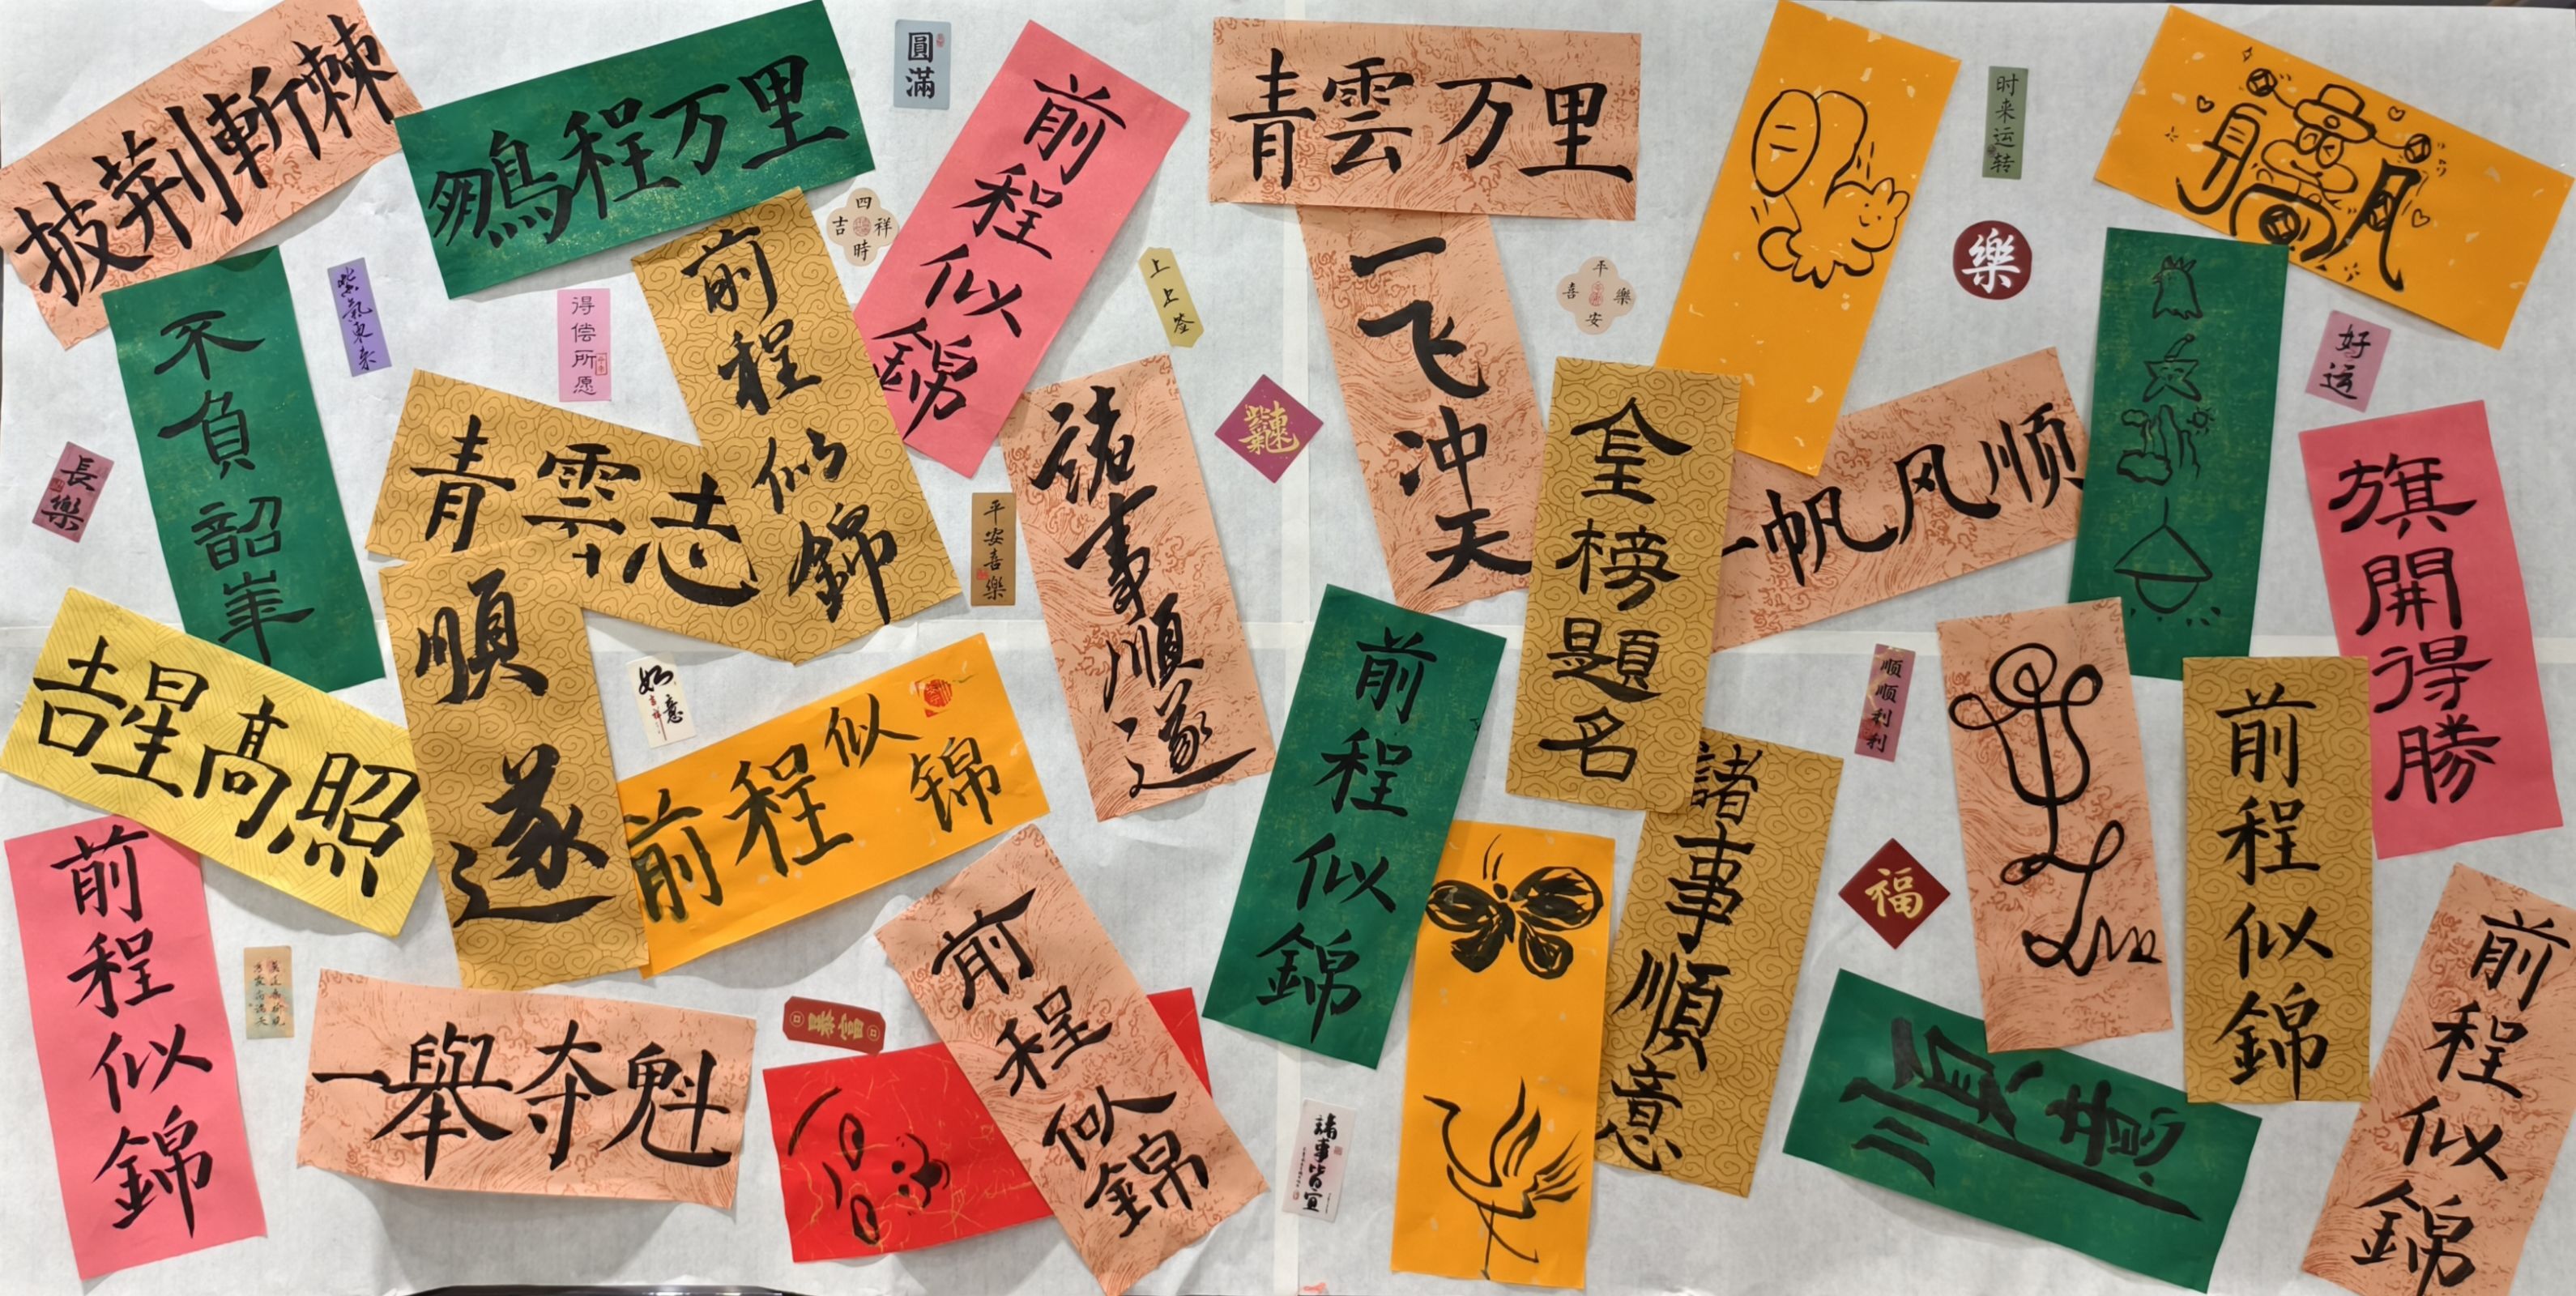 披荆斬棘
鵬程万里
圓滿
前程似錦
青雲万里
时来运转
不負韶華
紫氣東来
得偿所愿
四時吉祥
前程似錦
上上签
一飞冲天
平安喜樂
樂
好运
長樂
青雲志
諸事順遂
平安喜樂
金榜題名
一帆风顺
旗開得勝
吉星高照
順遂
如意
吉祥
前程似锦
前程似錦
諸事順意
顺顺利利
前程似錦
福
前程似錦
前程似錦
一舉夺魁
暴富
前程似錦
諸事皆宜
前程似錦